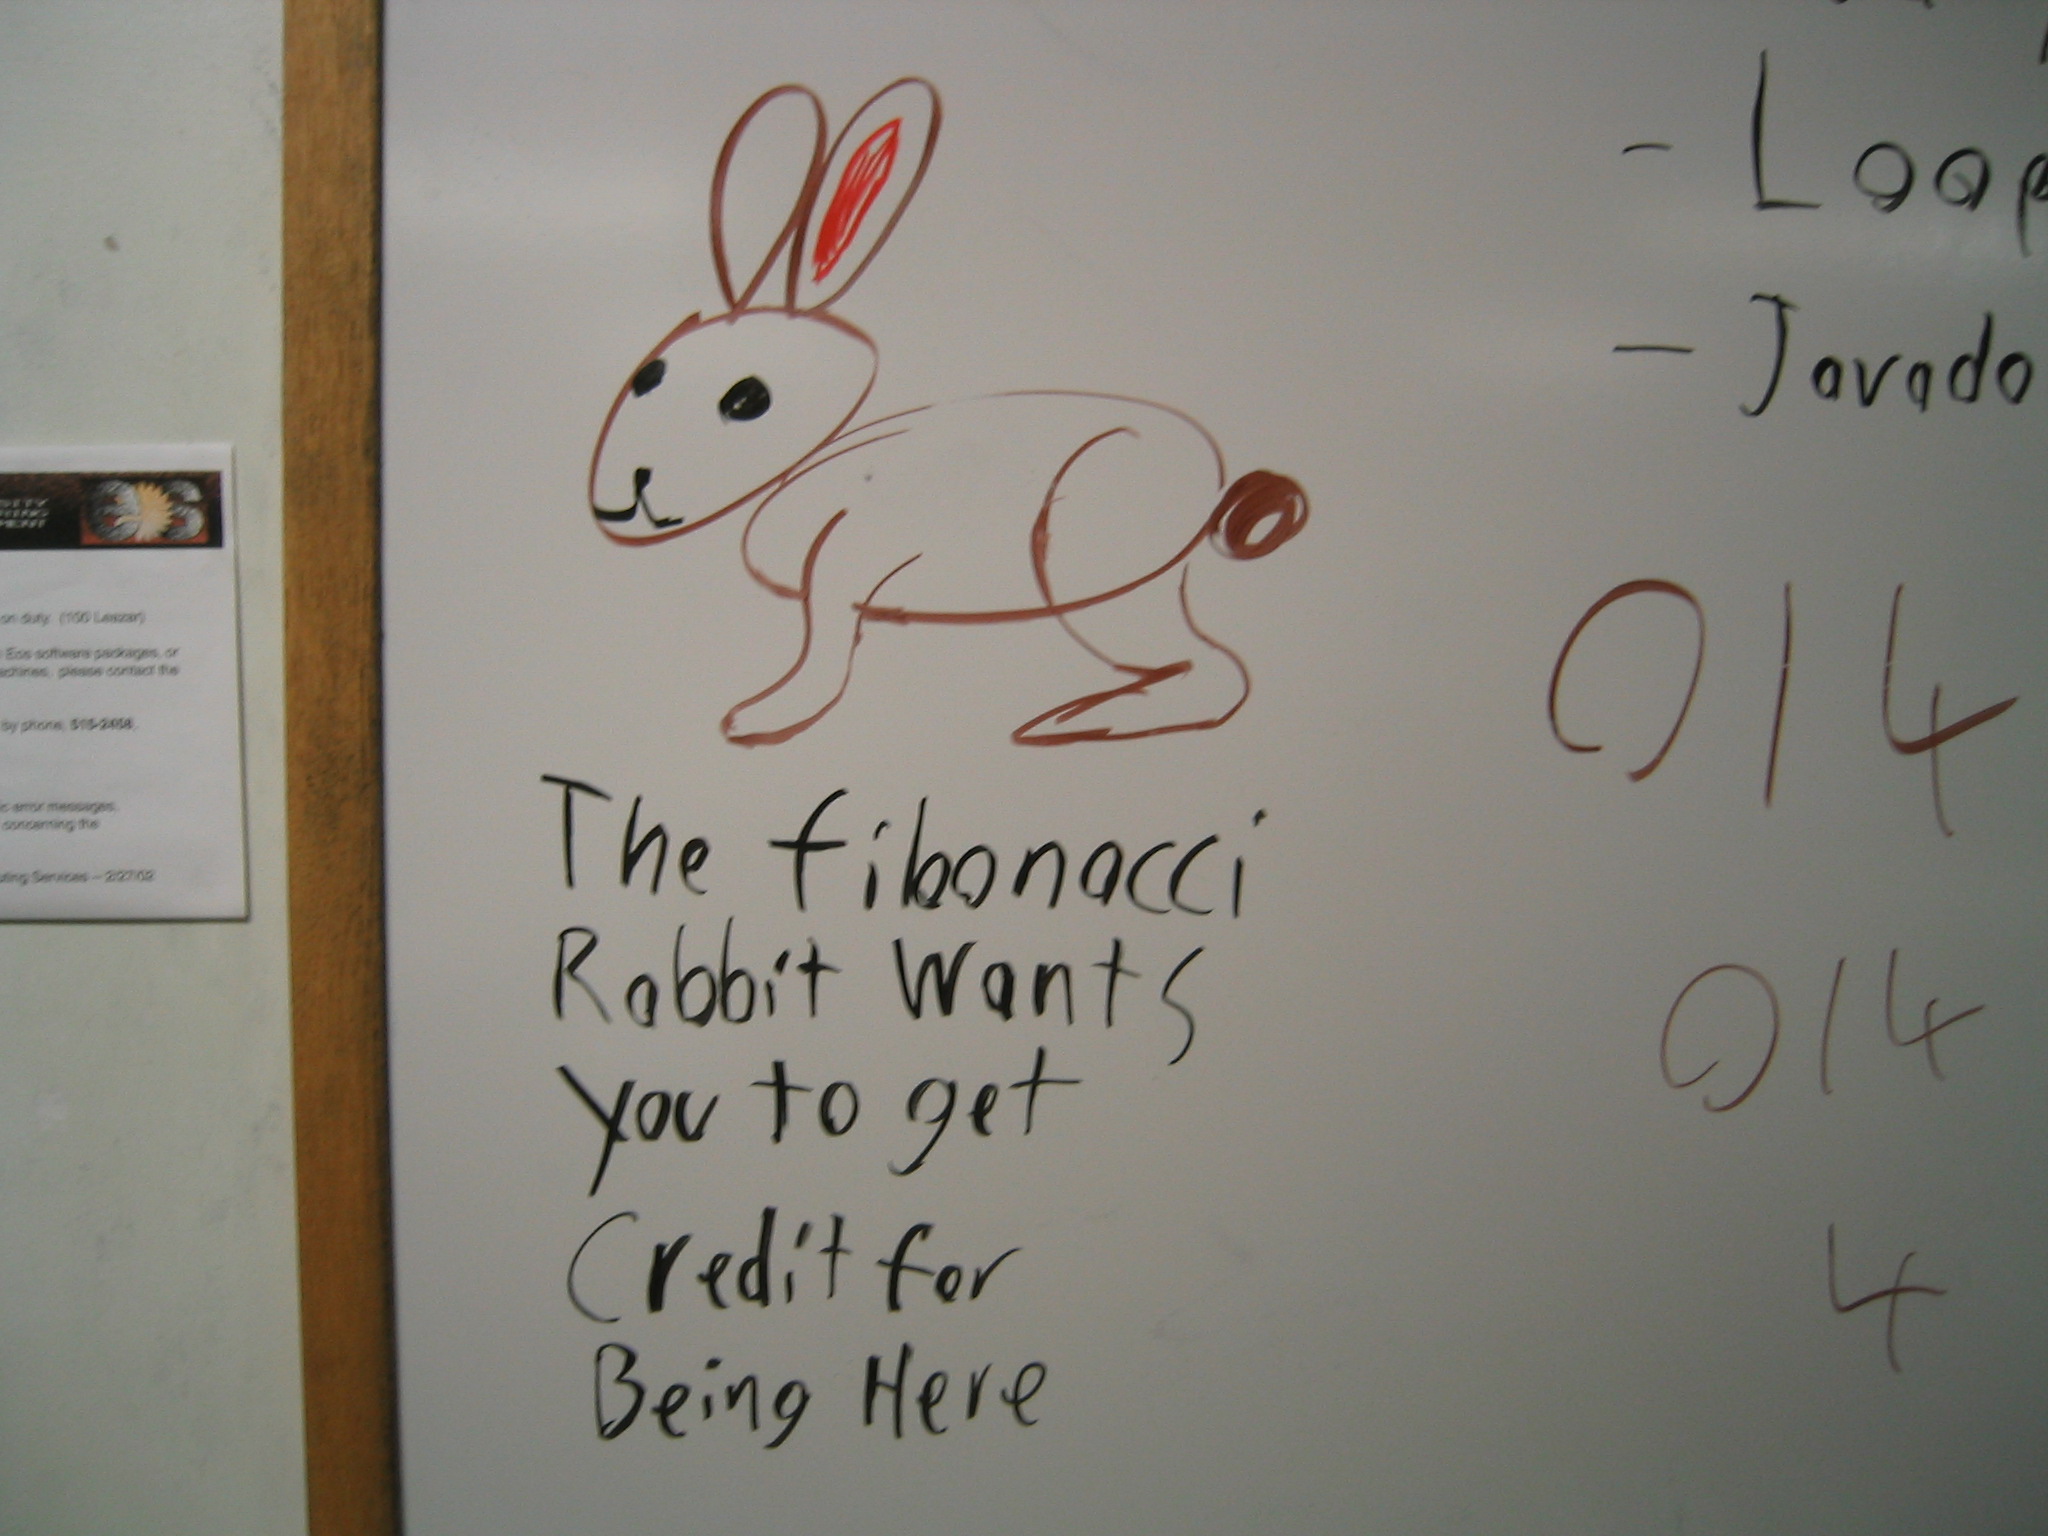 on duty. (100 Leazar)
Eos software packages, or
please contact the
by phone, 515-2458.
error messages,
concerning the
Services – 2/27/02
The fibonacci
Rabbit Wants
you to get
Credit for
Being Here
- Loop
- Javado
014
014
4